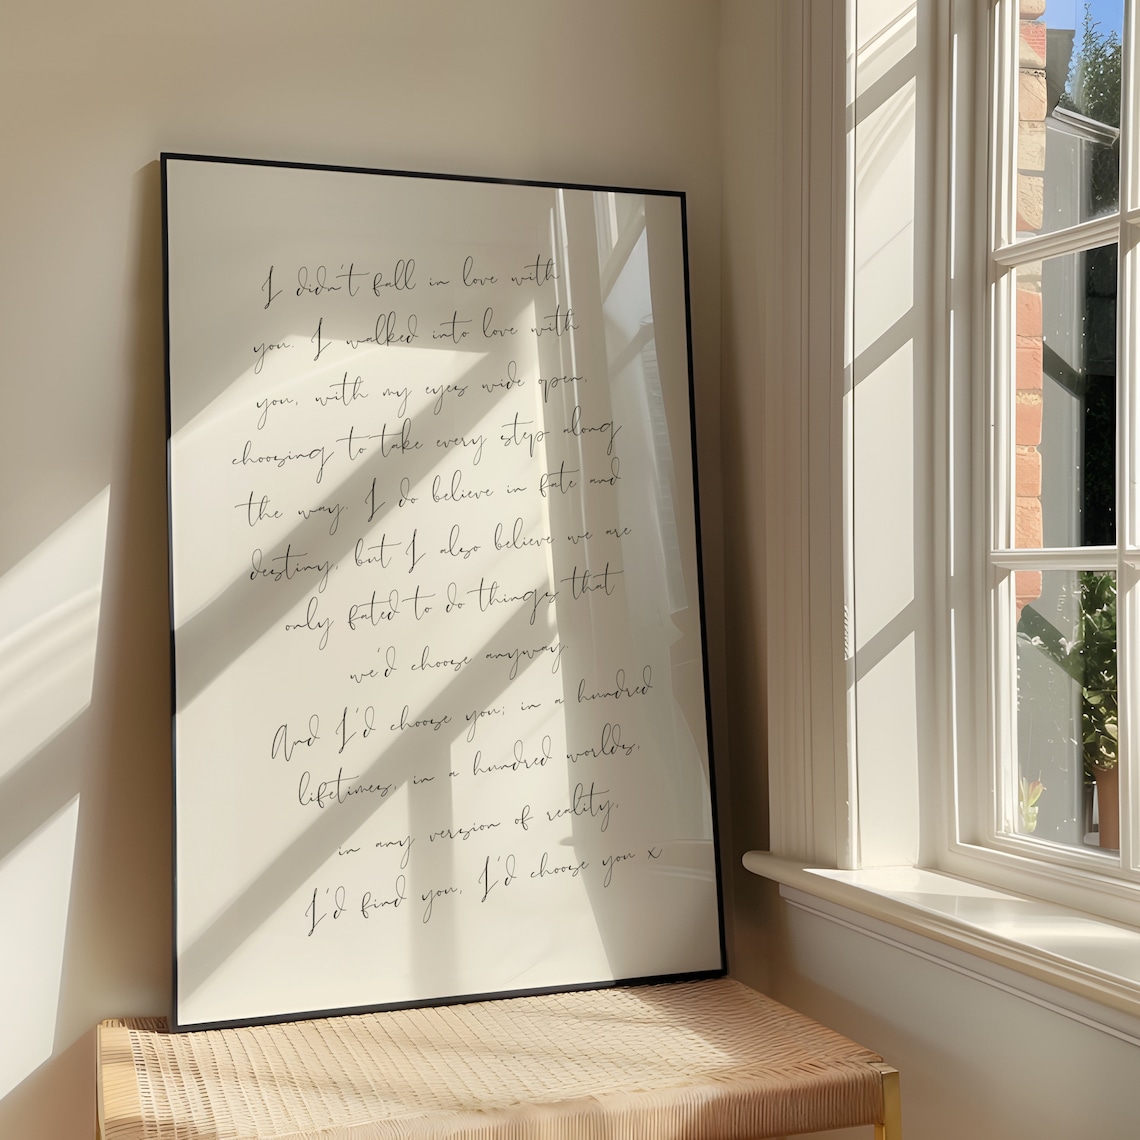 I didn't fall in love with
you. I walked into love with
you, with my eyes wide open,
choosing to take every step along
the way. I do believe in fate and
destiny, but I also believe we are
only fated to do things that
we'd choose anyway.
And I'd choose you; in a hundred
lifetimes, in a hundred worlds,
in any version of reality,
I'd find you, I'd choose you x